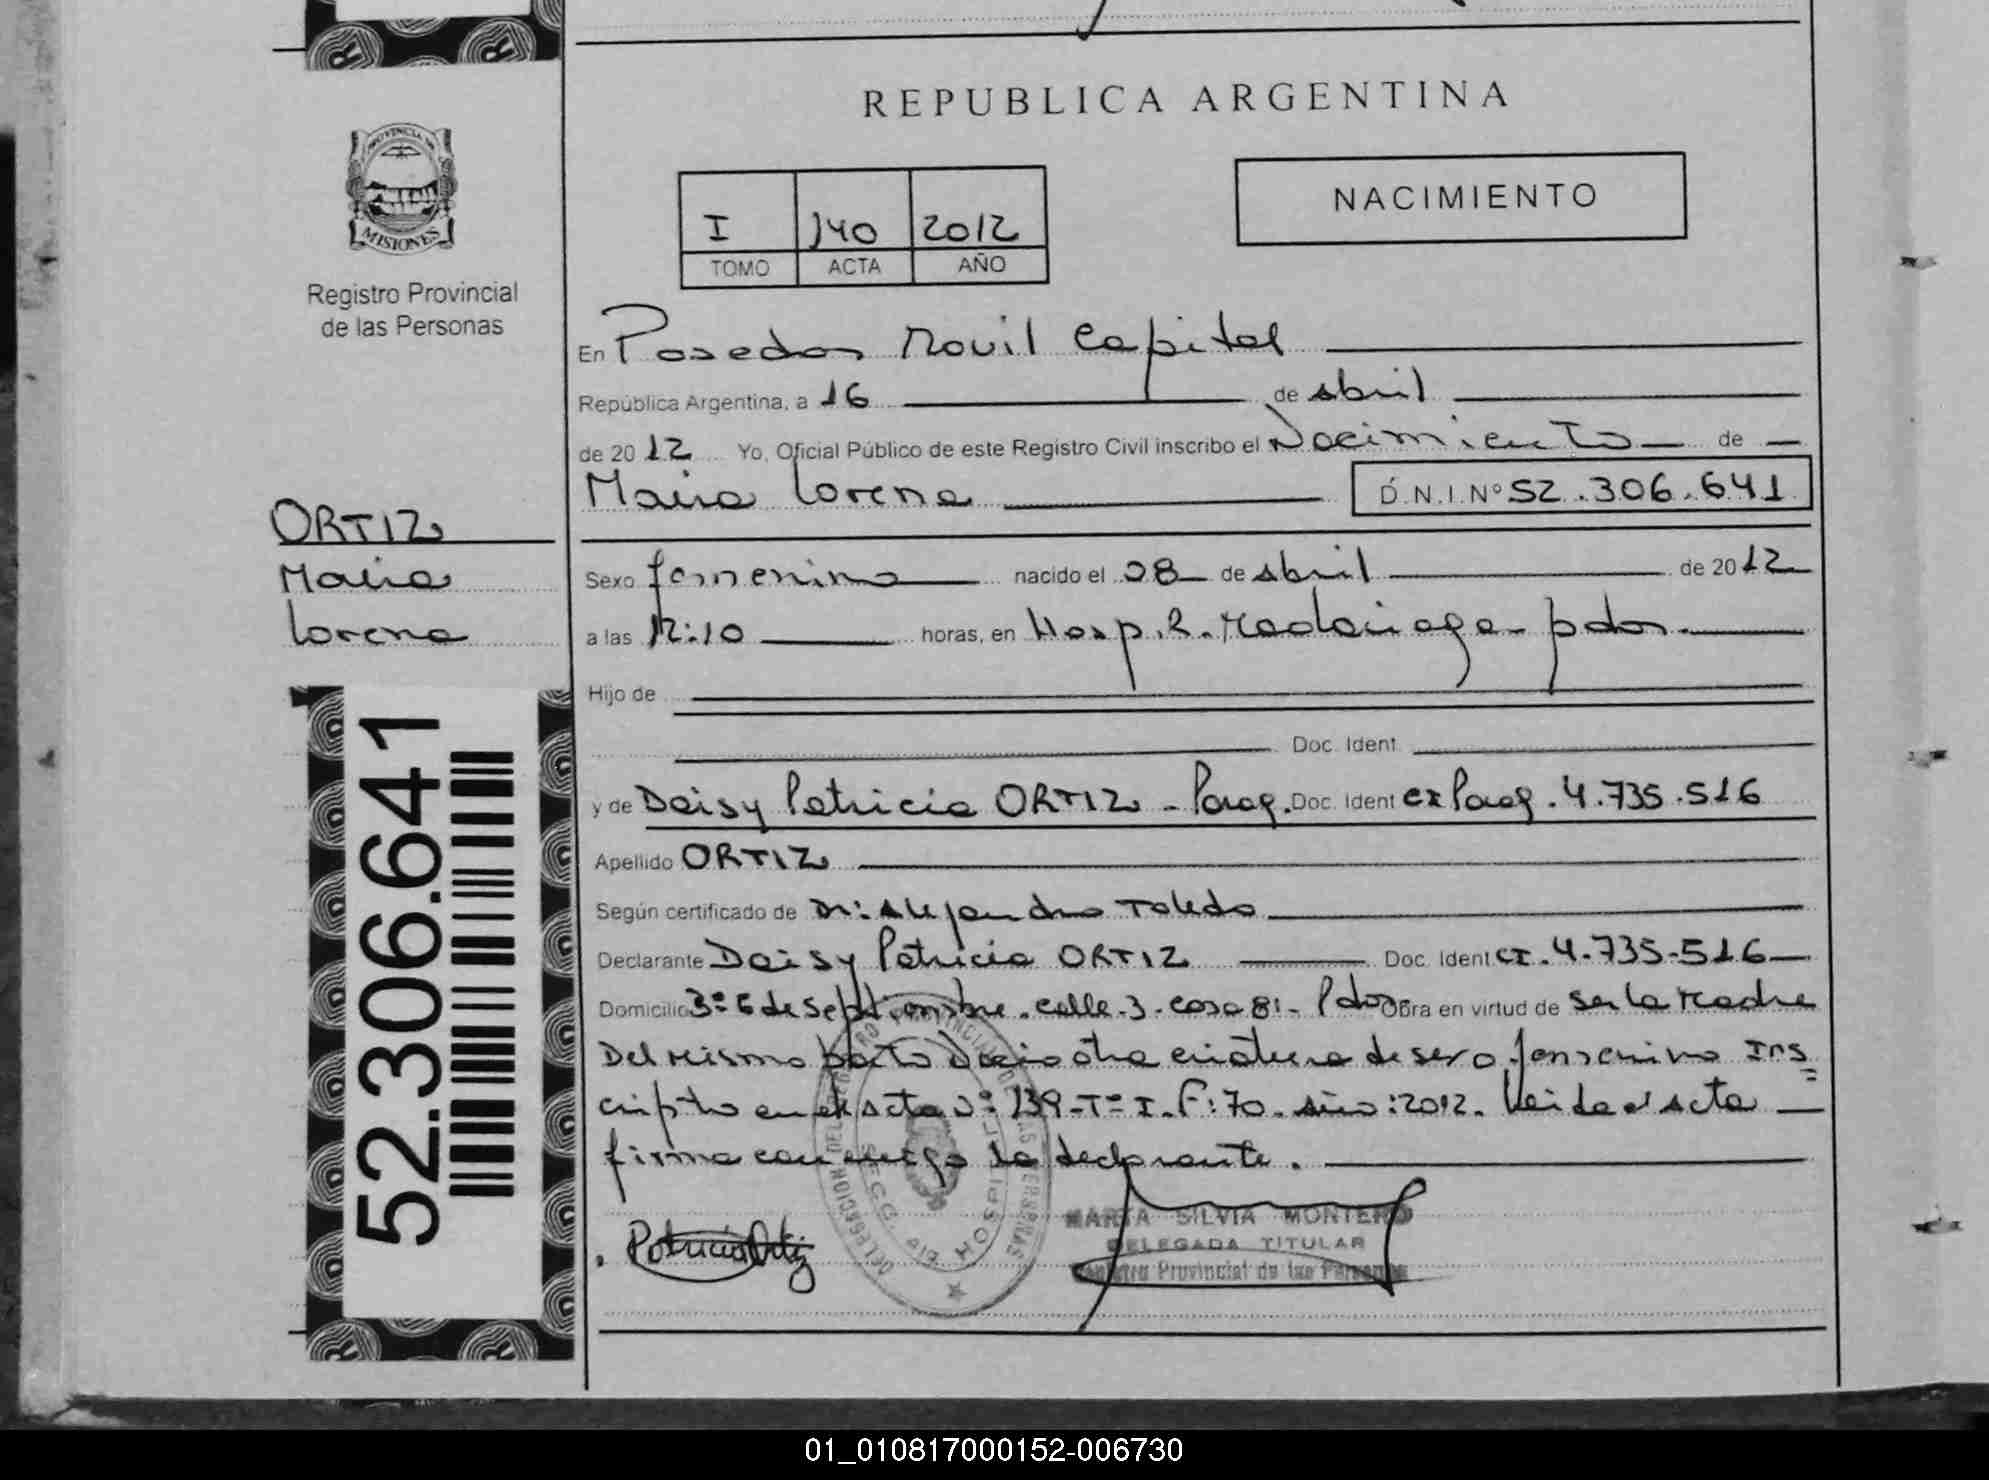 REPUBLICA ARGENTINA
PROVINCIA DE
MISIONES
Registro Provincial
de las Personas
I 140 2012
TOMO ACTA AÑO
NACIMIENTO
En Posadas Movil Capital
República Argentina, a 16 de abril
de 2012 Yo, Oficial Público de este Registro Civil inscribo el Nacimiento de
Maira Lorena D.N.I. Nº 52.306.641
ORTIZ
Maira
Lorena
Sexo femenino nacido el 08 de abril de 2012
a las 12:10 horas, en Hosp. R. Madariaga - pdas.
Hijo de
Doc. Ident.
y de Deisy Patricia ORTIZ - Parag. Doc. Ident CI Parag. 4.735.516
Apellido ORTIZ
Según certificado de Dr: Alejandro Toledo
Declarante Deisy Patricia ORTIZ Doc. Ident CI. 4.735-516
Domicilio 3º 6 de septiembre. calle. 3. casa 81- Pdas Obra en virtud de ser la madre
Del mismo parto Nacio otra criatura de sexo femenino Ins
cripto en el acta Nº 139-Tº I. F: 70. año: 2012. Leida el acta
firma conmigo la declarante.
52.306.641
Patricia Ortiz
DELEGACION DEL REGISTRO PROVINCIAL DE LAS PERSONAS
SECC. HOSPITAL
MARTA SILVIA MONTERO
DELEGADA TITULAR
Registro Provincial de las Personas
01_010817000152-006730